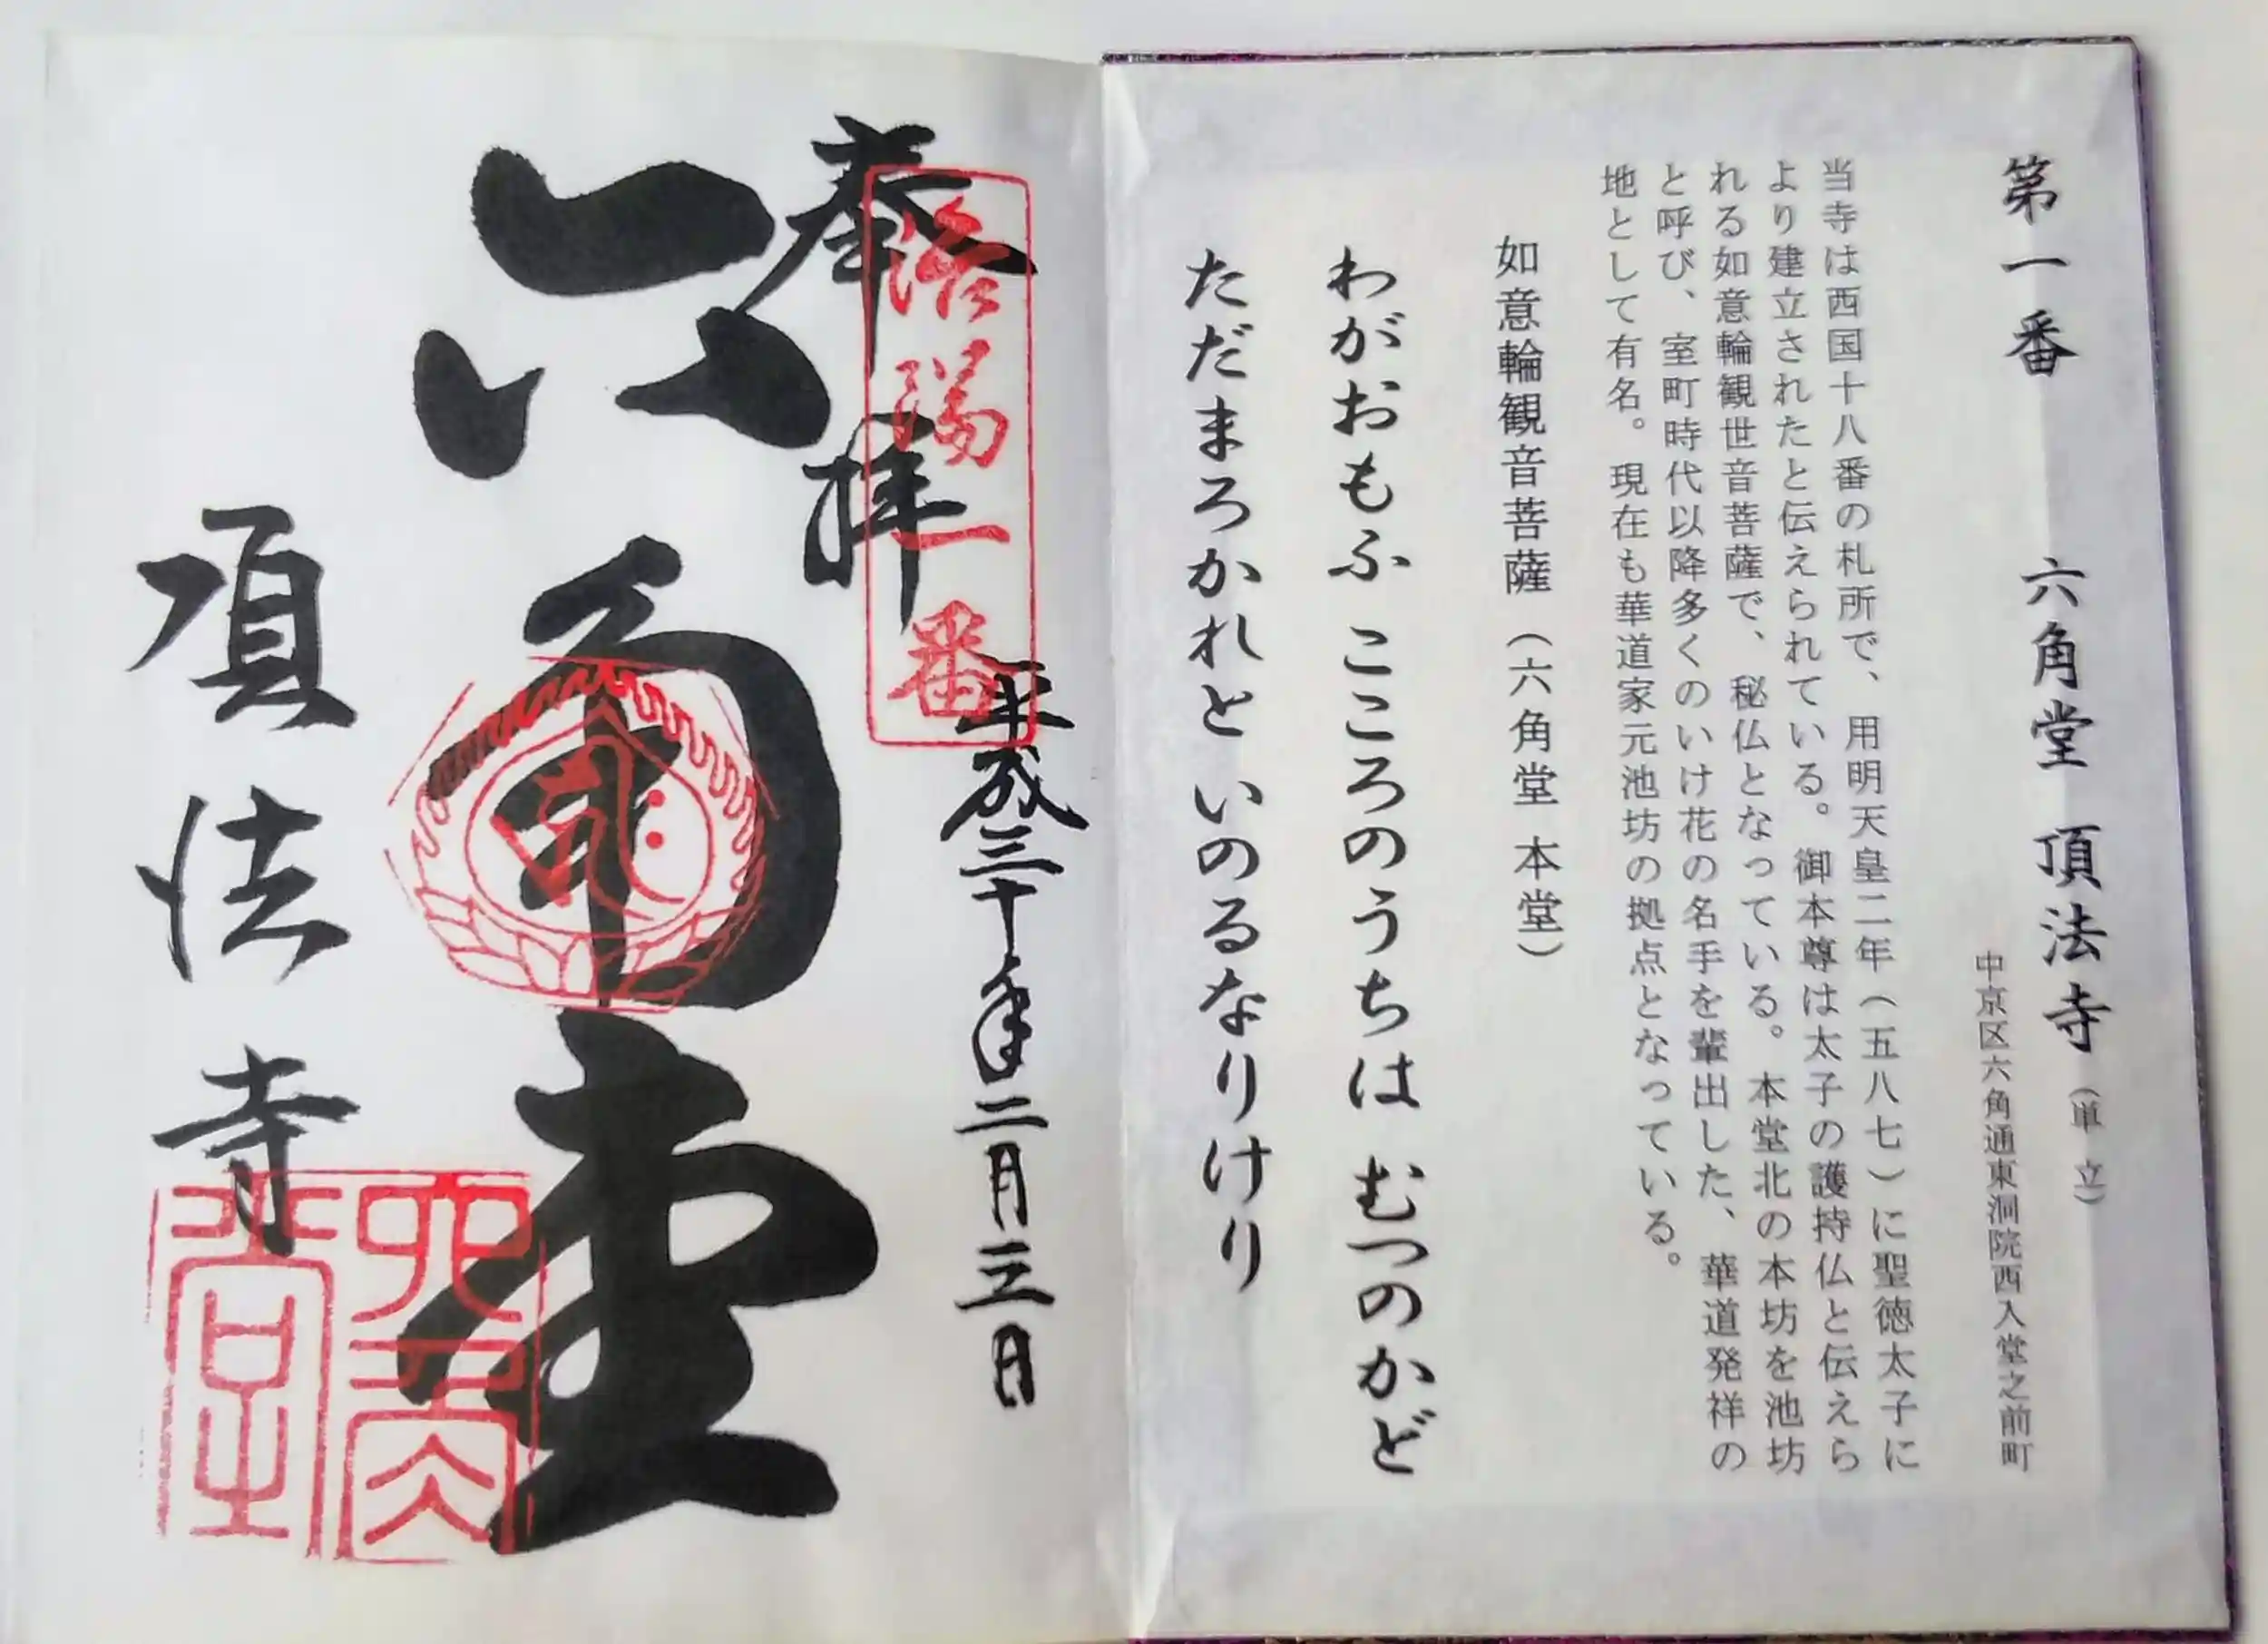 第一番　六角堂 頂法寺（単立）
中京区六角通東洞院西入堂之前町
当寺は西国十八番の札所で、用明天皇二年（五八七）に聖徳太子に
より建立されたと伝えられている。御本尊は太子の護持仏と伝えら
れる如意輪観世音菩薩で、秘仏となっている。本堂北の本坊を池坊
と呼び、室町時代以降多くのいけ花の名手を輩出した、華道発祥の
地として有名。現在も華道家元池坊の拠点となっている。
如意輪観音菩薩（六角堂 本堂）
わがおもふ こころのうちは むつのかど
ただまろかれと いのるなりけり
奉拝
洛陽一番
平成三十年二月三日
六角堂
頂法寺
六角堂